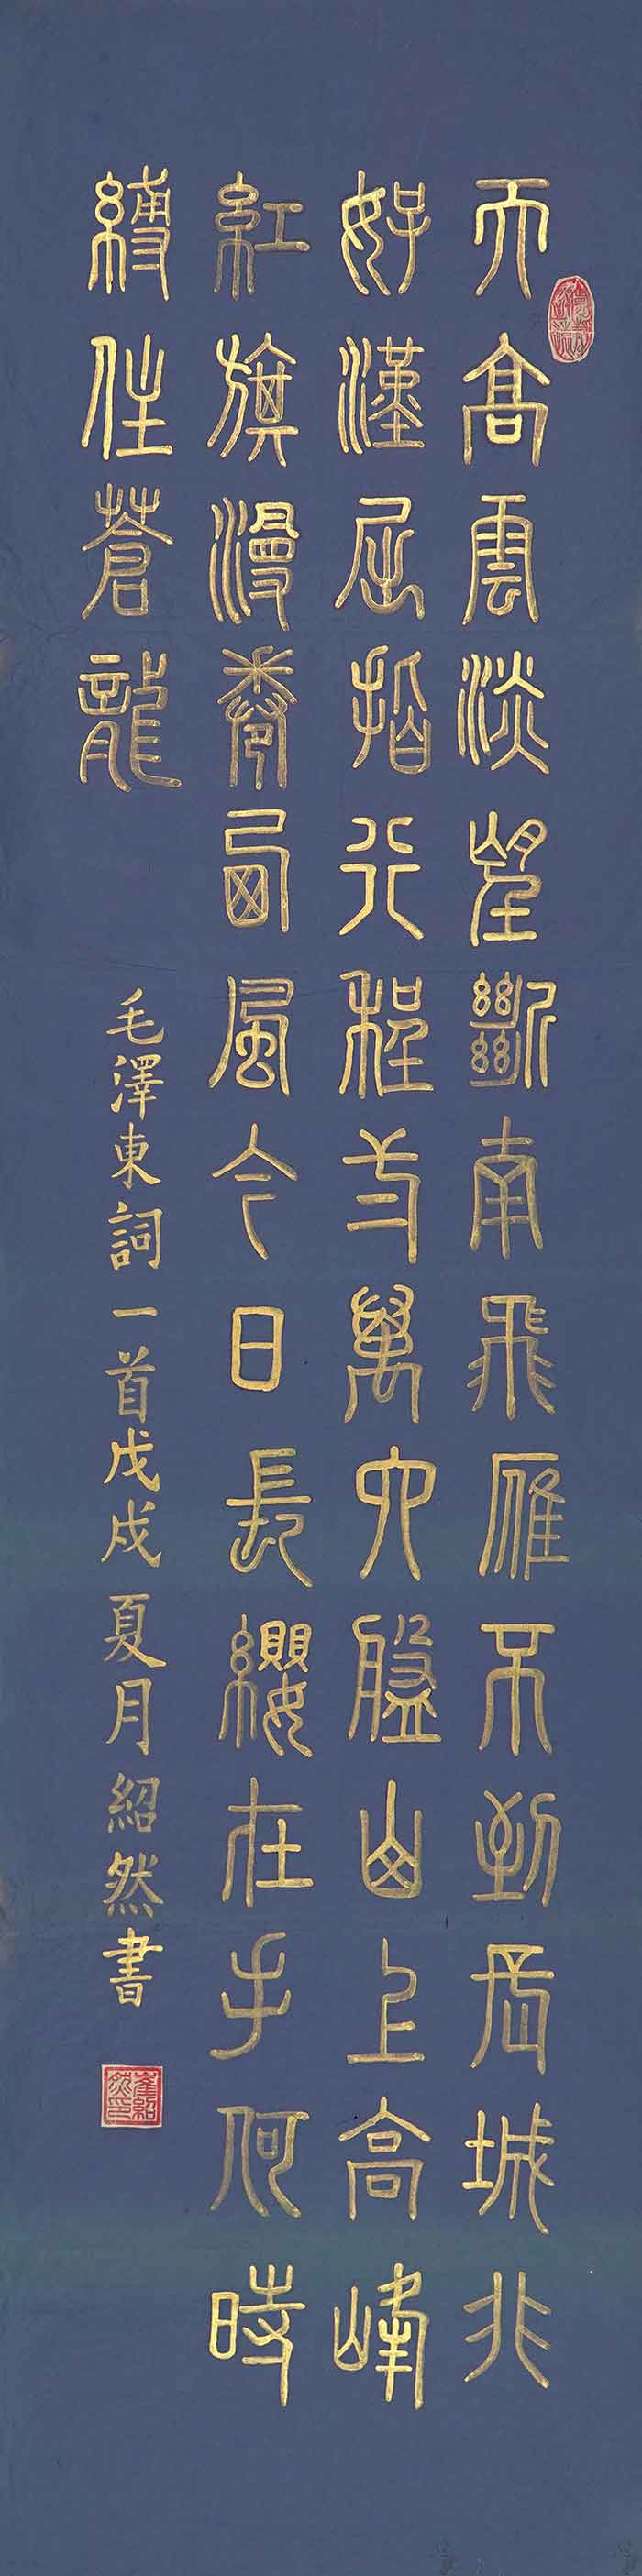 天高雲淡望斷南飛雁不到長城非
好漢屈指行程二萬六盤山上高峰
紅旗漫卷西風今日長纓在手何時
縛住蒼龍
毛澤東詞一首戊戌夏月紹然書